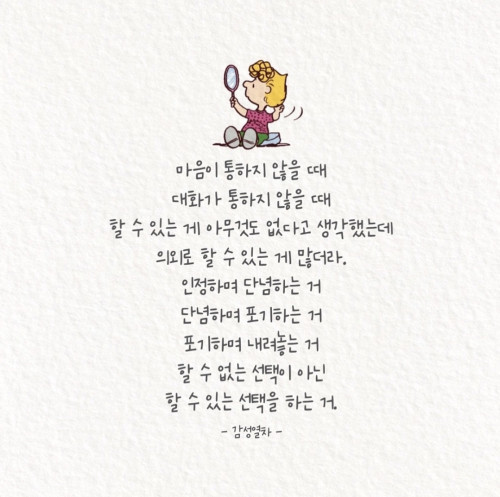 마음이 통하지 않을 때
대화가 통하지 않을 때
할 수 있는 게 아무것도 없다고 생각했는데
의외로 할 수 있는 게 많더라.
인정하며 단념하는 거
단념하며 포기하는 거
포기하며 내려놓는 거
할 수 없는 선택이 아닌
할 수 있는 선택을 하는 거.
- 감성열차 -